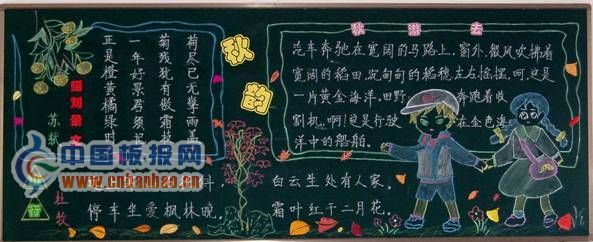 秋韵
赠刘景文
苏轼
荷尽已无擎雨盖
菊残犹有傲霜枝
一年好景君须
正是橙黄橘绿时
秋游去
汽车奔驰在宽阔的马路上,窗外,微风吹拂着
宽阔的稻田,沉甸甸的稻穗左右摇摆,呵,这是
一片黄金海洋,田野 奔跑着收
割机,啊!这是行驶 在金色海
洋中的船舶。
中国板报网
www.cnbanbao.cn
山行
杜牧
斜,白云生处有人家。
停车坐爱枫林晚,霜叶红于二月花。